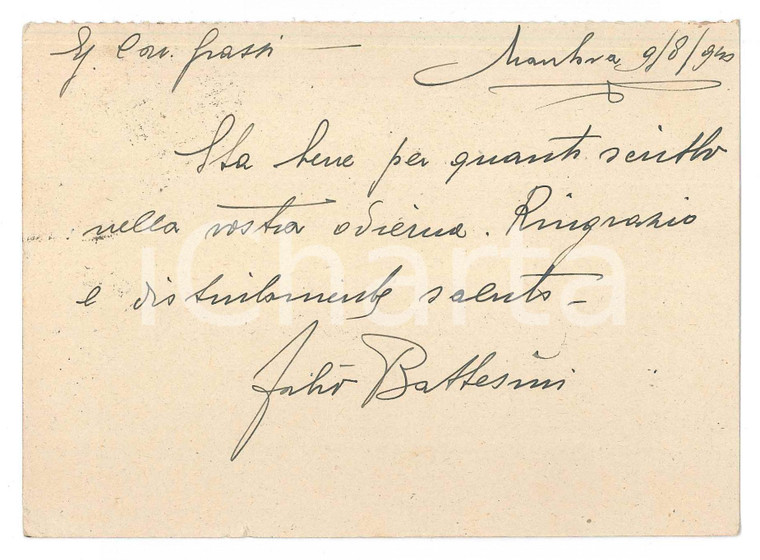 Eg. Cav. Grassi — Mantova, 9/8/940
Sta bene per quanto scritto
nella vostra odierna. Ringrazio
e distintamente saluto –
Fabio Battesini
iCharta